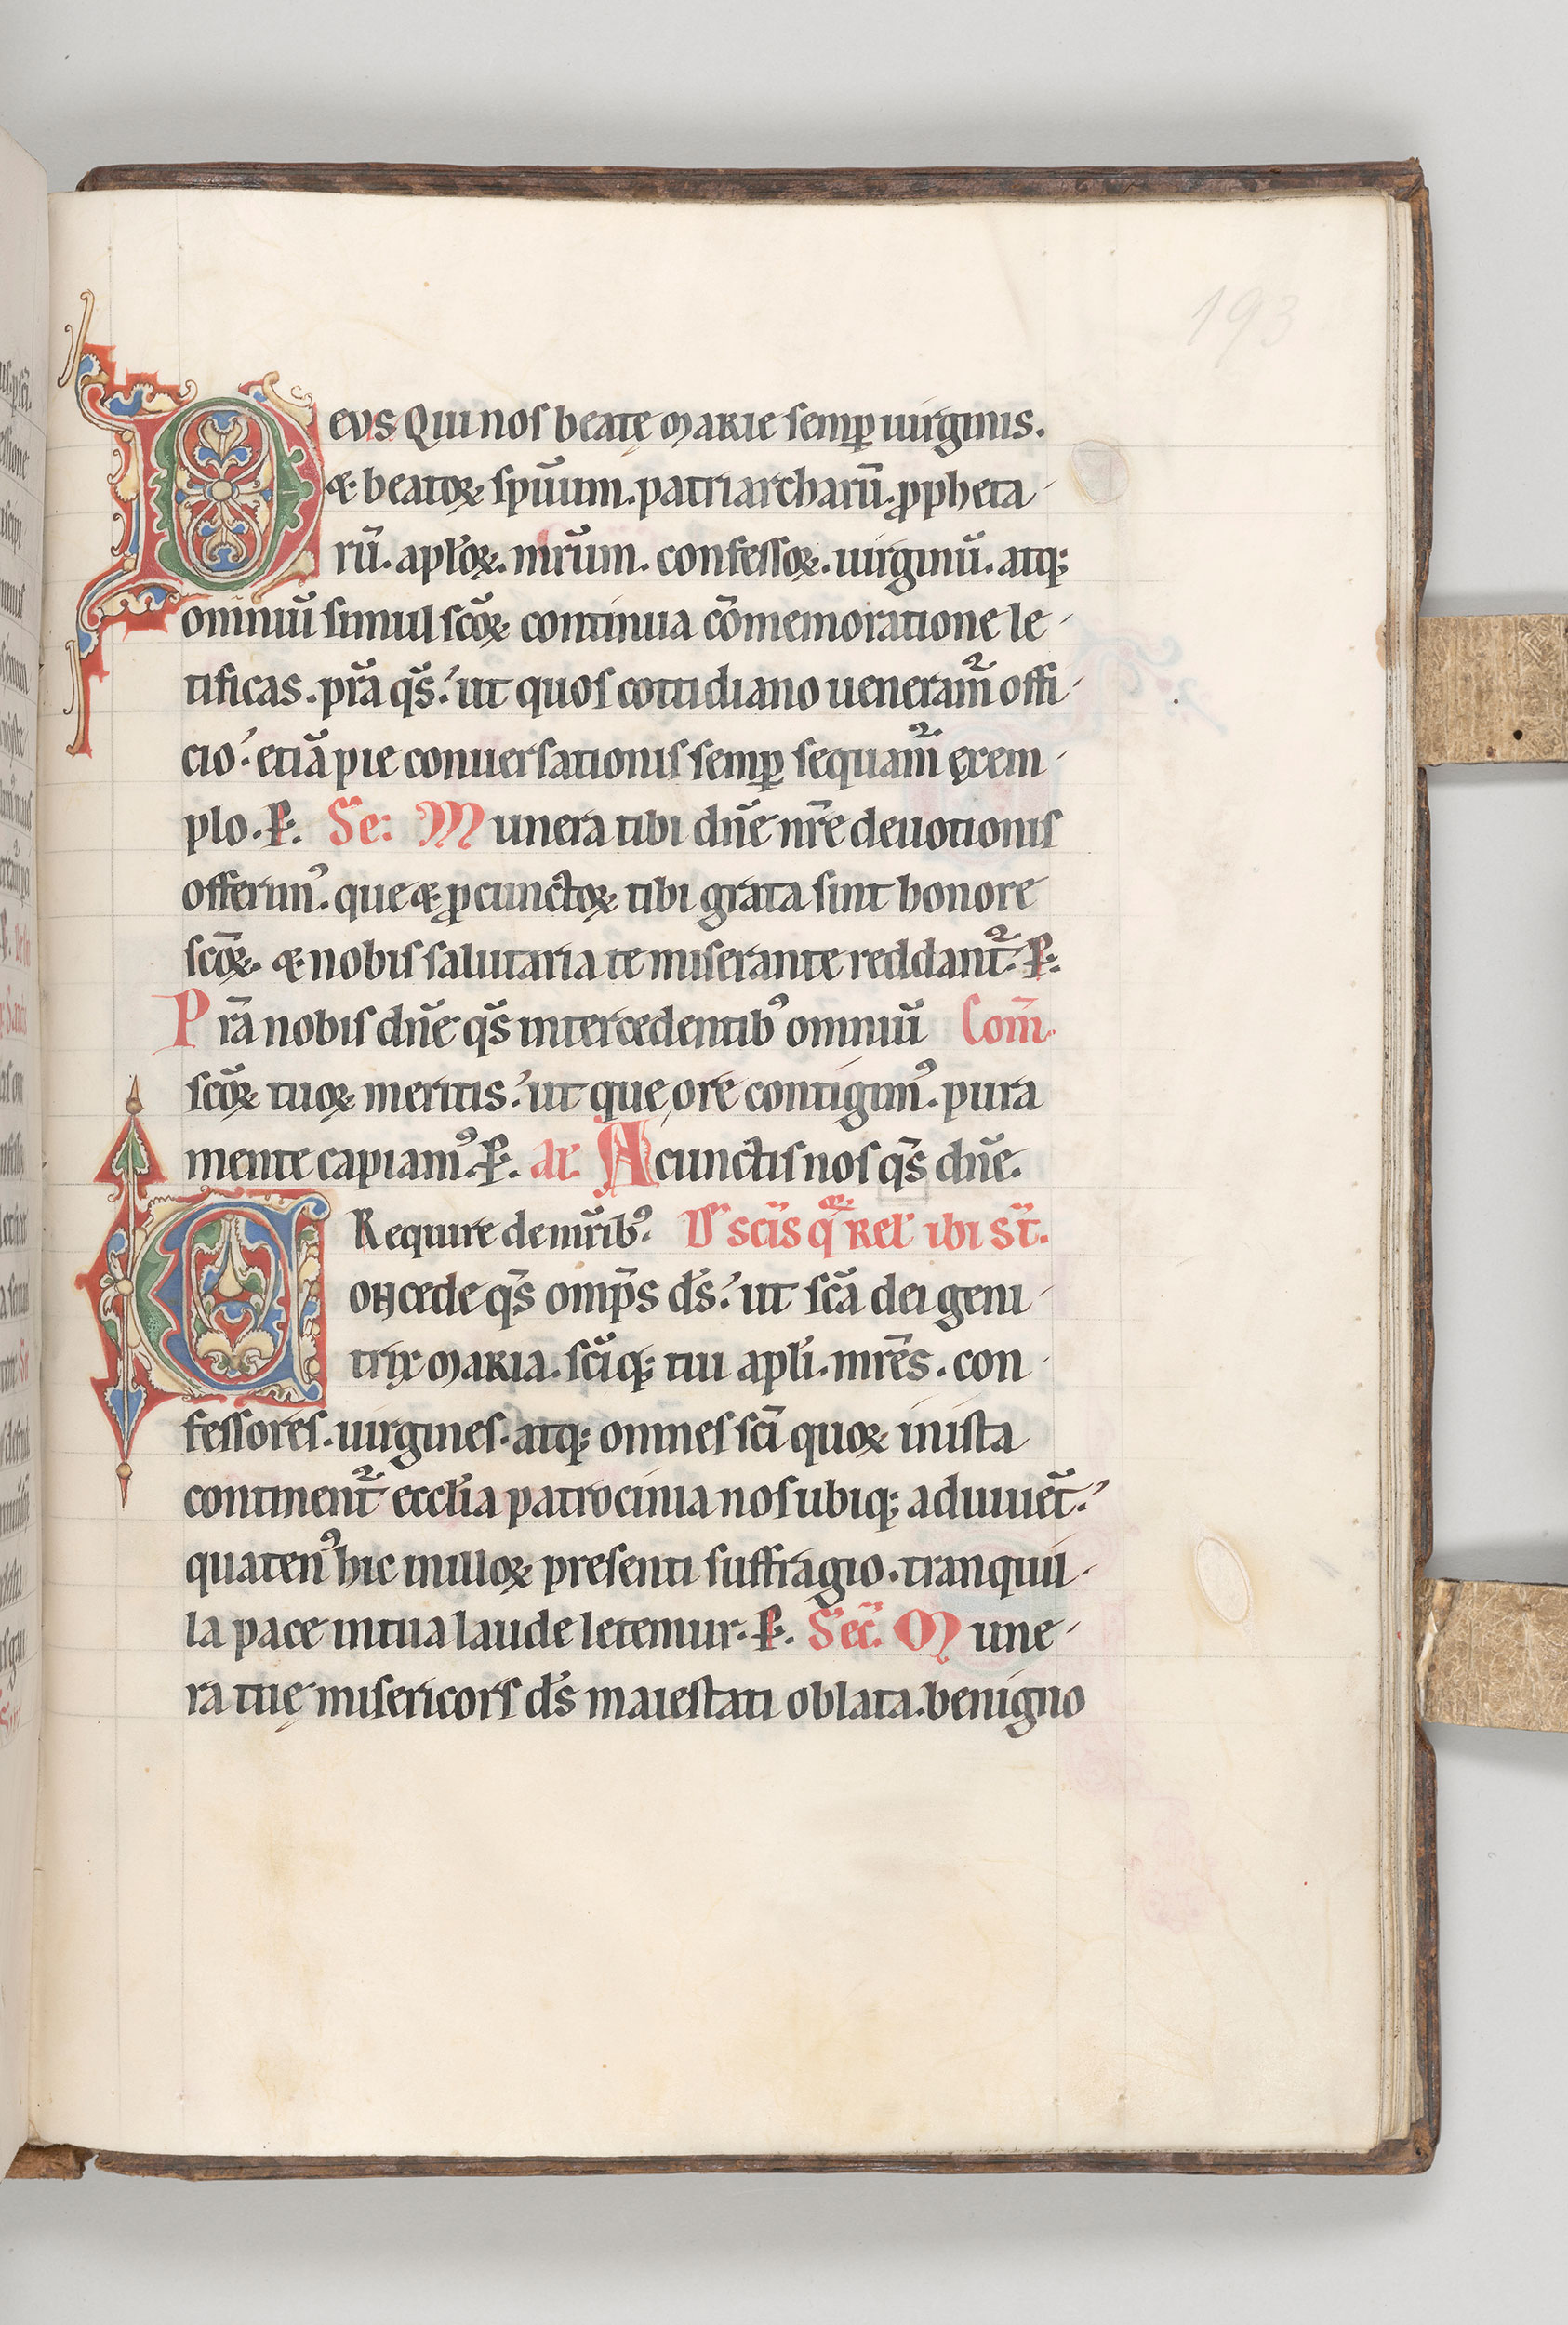 193
DEUS Qui nos beatę MARIE semp uirginis.
& beatoꝝ spūum. patriarcharū. ꝓpheta
rū. apl'oꝝ. mr̄um. confessoꝝ. uirginū. atq;
omniū simul sc̄oꝝ continua cōmemoratione le
tificas. pr̄a qs̄. ut quos cottidiano ueneram̄ offi
cio. etiā pie conuersationis semp sequam̄ exem
plo. P. Se: Munera tibi dn̄e nr̄e deuotionis
offerim᾽. que & ꝓ cunctoꝝ tibi grata sint honore
sc̄oꝝ. & nobis salutaria te miserante reddant̄. P.
Pr̄a nobis dn̄e qs̄ intercedentib᾽ omniū Com̄.
sc̄oꝝ tuoꝝ meritis. ut que ore contigim᾽. pura
mente capiam᾽. P. A cunctis nos qs̄ dn̄e.
Require de mr̄ib᾽. D' sc̄is qr̄ Rel' ibi st̄.
CONcede qs̄ omps̄ ds̄. ut sc̄a dei geni
trix MARIA. sc̄iq; tui apl'i. mr̄es. con
fessores. uirgines. atq; omnes sc̄i quoꝝ inista
continent̄ eccl'ia patrocinia nos ubiq; adiuuēt.
quaten᾽ hic inilloꝝ presenti suffragio. tranquil
la pace intua laude letemur. P. Sec̄. Mune
ra tuę misericors ds̄ maiestati oblata. benigno